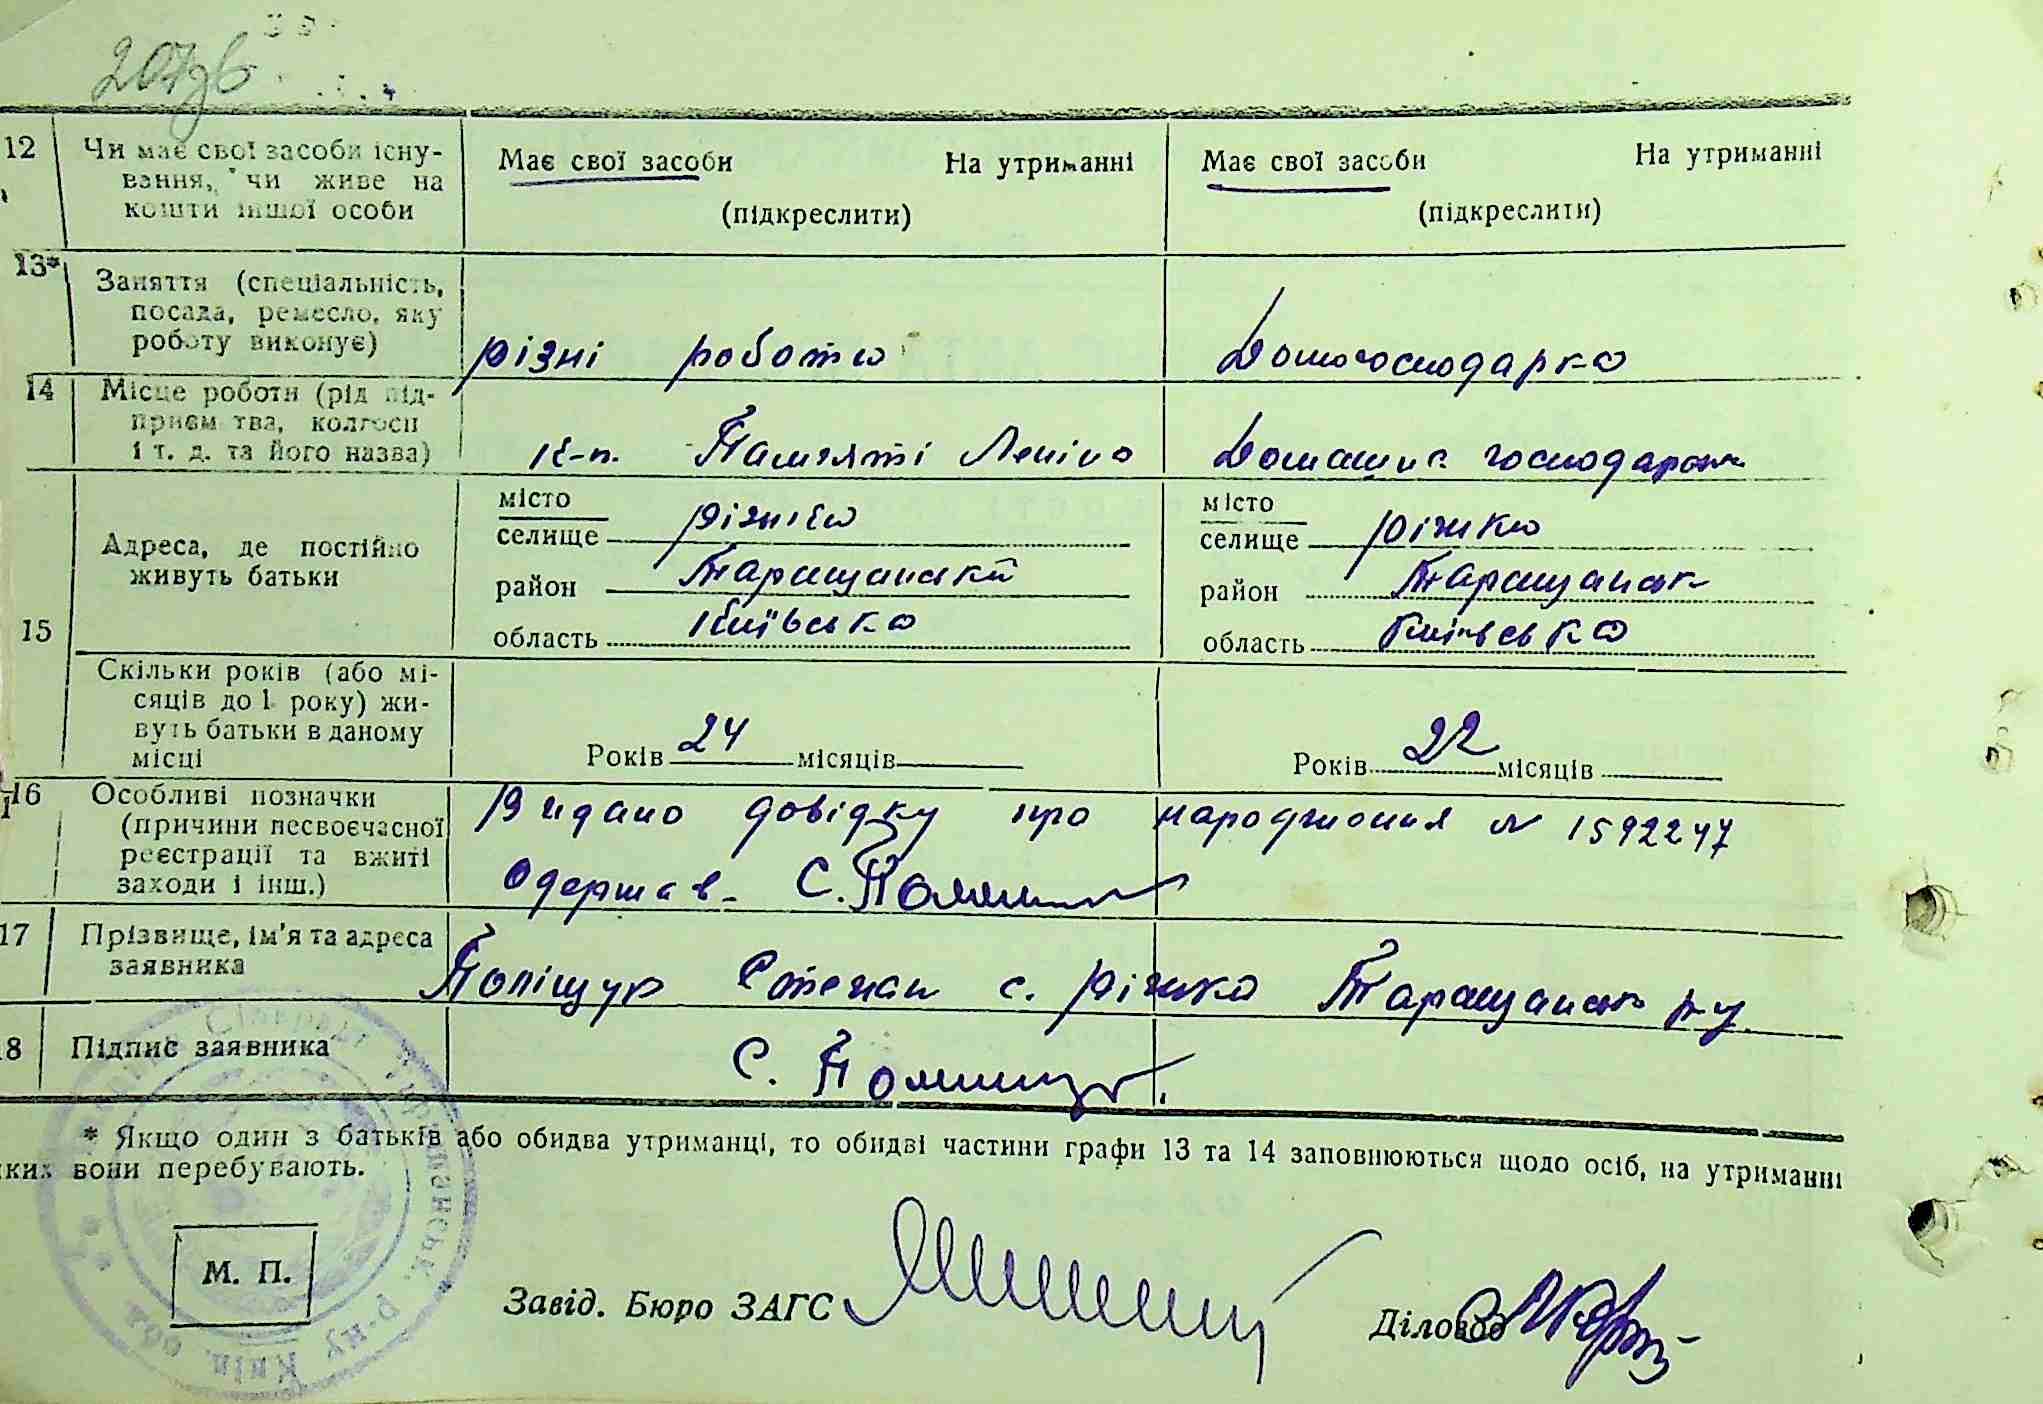 12
Чи має свої засоби існу-
вання, чи живе на
кошти іншої особи
Має свої засоби На утриманні
(підкреслити)
Має свої засоби На утриманні
(підкреслити)
13*
Заняття (спеціальність,
посада, ремесло, яку
роботу виконує)
різні роботи
Домогосподарка
14
Місце роботи (рід під-
приєм тва, колгосп
і т. д. та його назва)
к-п. Памʼяті Леніна
Домашнє господарст
15
Адреса, де постійно
живуть батьки
місто
селище
район Таращанський
область Київська
місто
селище Ріжки
район Таращанськ
область Київська
Скільки років (або мі-
сяців до 1 року) жи-
вуть батьки в даному
місці
Років 24 місяців
Років 22 місяців
16
Особливі позначки
(причини несвоєчасної
реєстрації та вжиті
заходи і інш.)
Видано довідку про народження № 1592247
Одержав- С.
17
Прізвище, ім'я та адреса
заявника
Поліщук Степан с. Ріжки Таращанськ р-ну
18
Підпис заявника
С.
* Якщо один з батьків або обидва утриманці, то обидві частини графи 13 та 14 заповнюються щодо осіб, на утриманні
яких вони перебувають.
М. П.
Завід. Бюро ЗАГС
Діловод